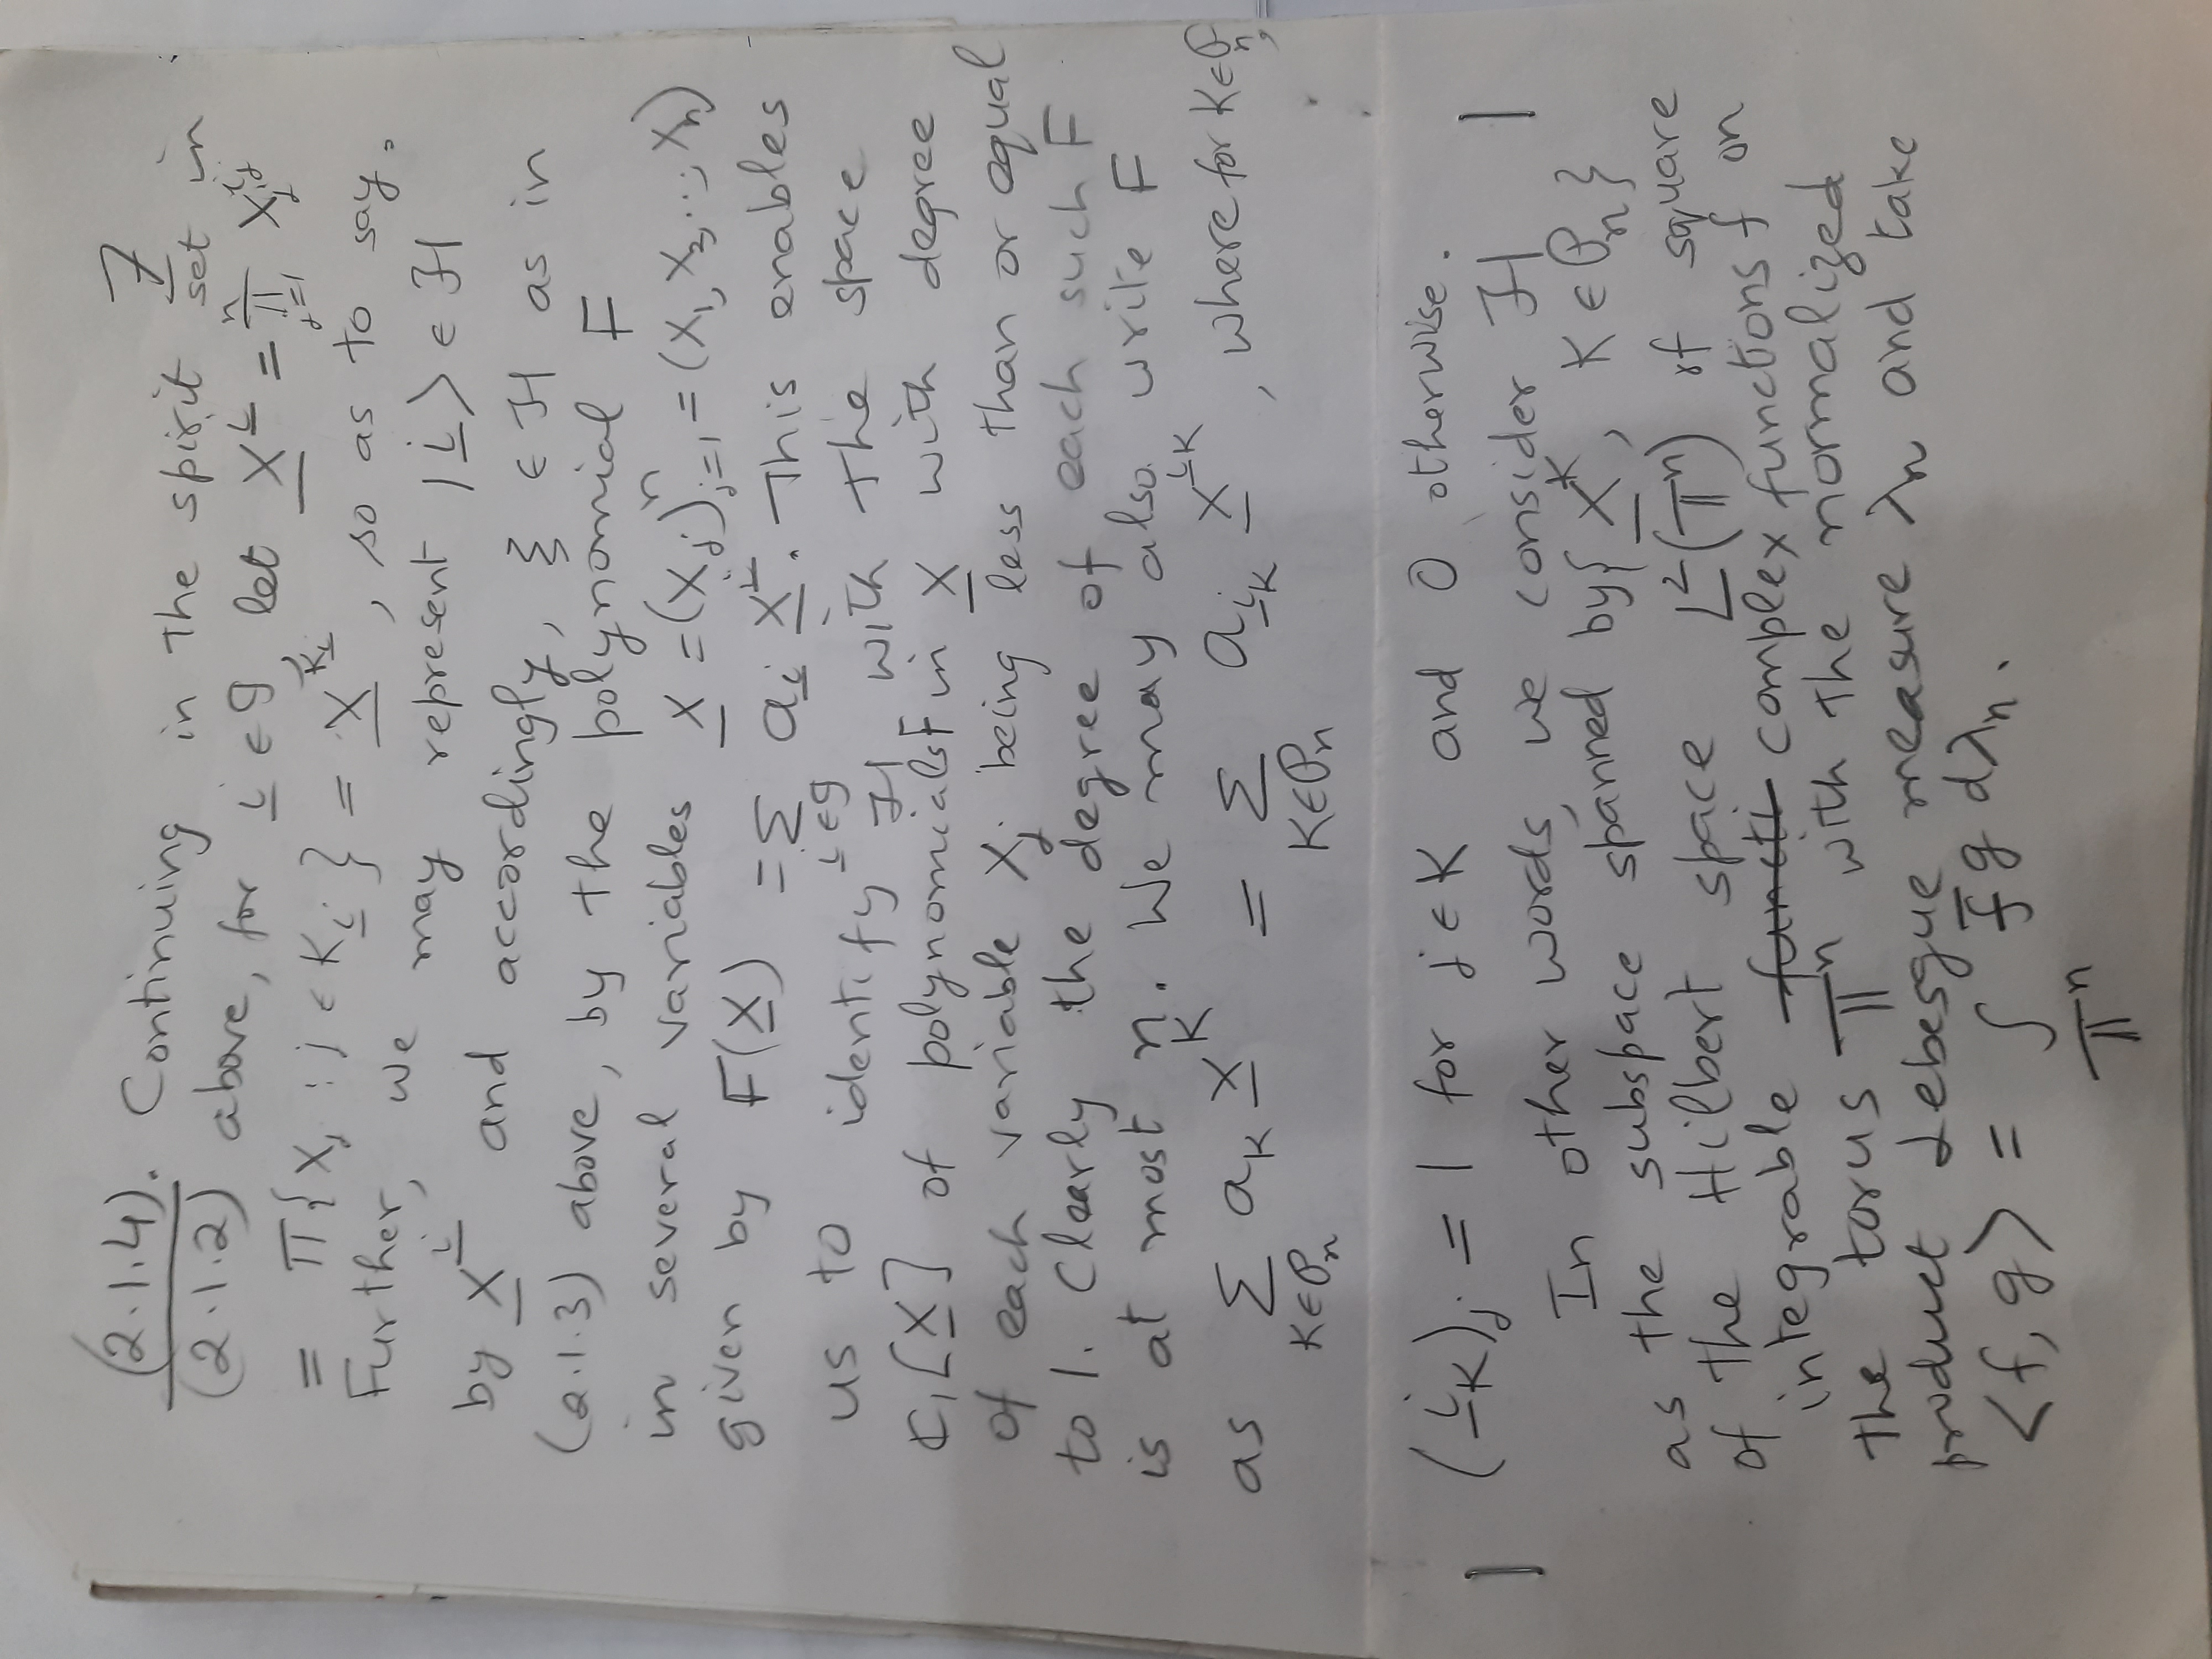 7
(2.1.4). Continuing in the spirit set in
(2.1.2) above, for i̲ ∈ 𝓘, let X̲^i̲ = ∏_{j=1}^n X_j^{i_j}
= Π{X_j : j ∈ K_i̲} = X̲^{K_i̲}, so as to say.
Further, we may represent |i̲⟩ ∈ ℋ
by X̲^i̲ and accordingly, ξ ∈ ℋ as in
(2.1.3) above, by the polynomial F
in several variables X̲ = (X_j)_{j=1}^n = (X_1, X_2, ..., X_n)
given by F(X̲) = Σ_{i̲∈𝓘} a_i̲ X̲^i̲. This enables
us to identify ℋ with the space
ℂ_1[X̲] of polynomials F in X̲ with degree
of each variable X_j being less than or equal
to 1. Clearly the degree of each such F
is at most n. We may also write F
as Σ_{K∈𝒫_n} a_K X̲^K = Σ_{K∈𝒫_n} a_{i̲_K} X̲^{i̲_K}, where for K∈𝒫_n,
(i̲_K)_j = 1 for j ∈ K and 0 otherwise.
In other words, we consider ℋ
as the subspace spanned by {X̲^K, K ∈ 𝒫_n}
of the Hilbert space L²(𝕋ⁿ) of square
integrable functi complex functions f on
the torus 𝕋ⁿ with the normalized
product Lebesgue measure λ_n and take
<f, g> = ∫_{𝕋ⁿ} f̄ g dλ_n.